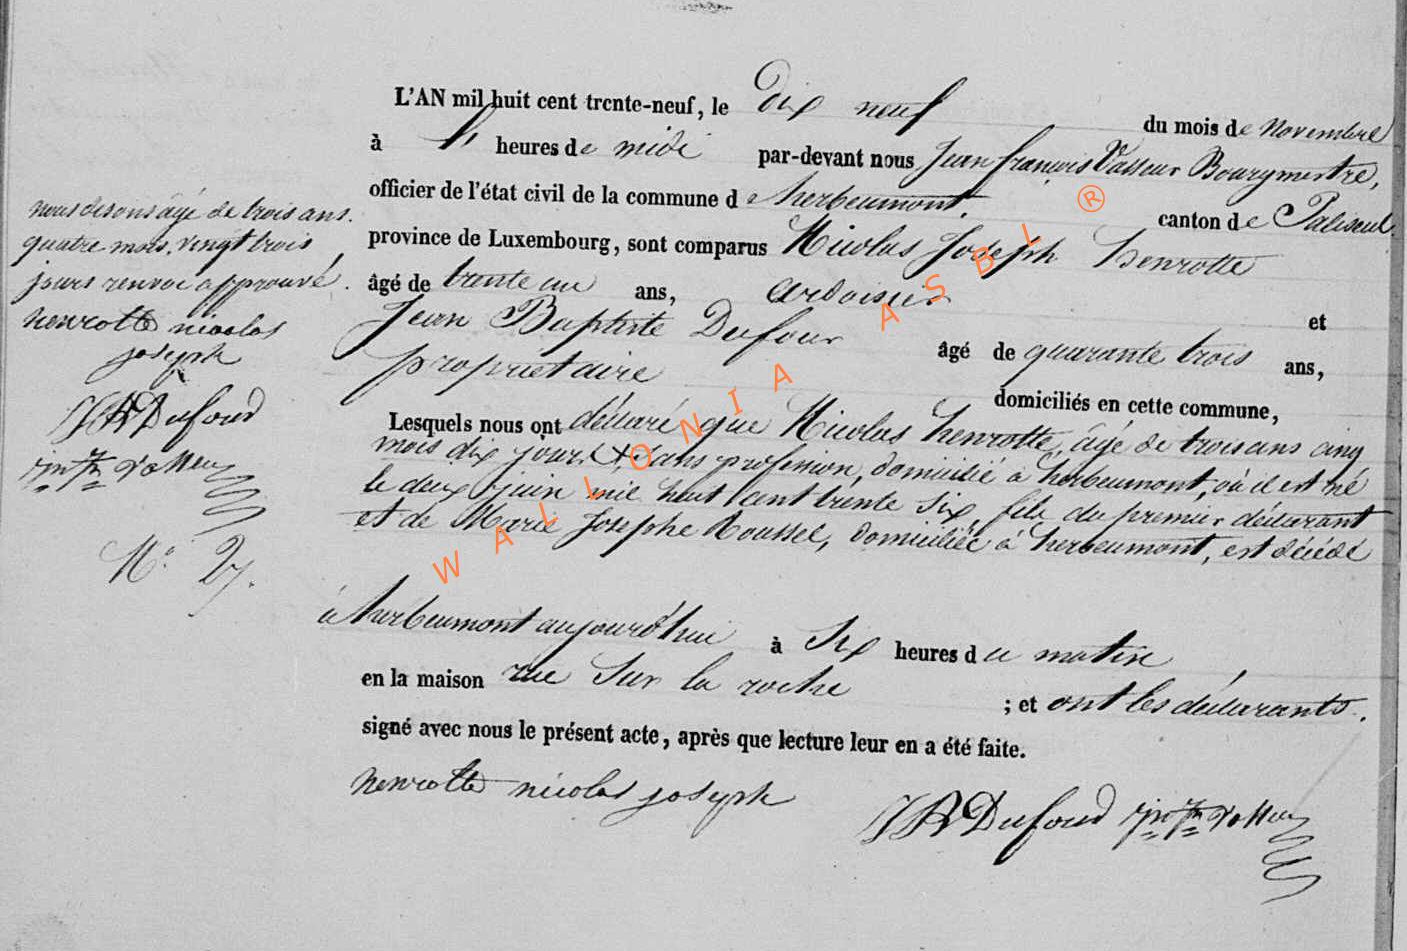 L'AN mil huit cent trente-neuf, le dix neuf du mois de Novembre
à 4 heures de midi par-devant nous Jean françois Vasseur Bourgmestre,
officier de l'état civil de la commune de herbeumont, canton de Paliseul
province de Luxembourg, sont comparus Nicolas Joseph henrotte
âgé de trente un ans, ardoisier et
Jean Baptiste Dufour âgé de quarante trois ans,
propriétaire domiciliés en cette commune,
Lesquels nous ont déclaré que Nicolas henrotte, âgé de trois ans cinq
mois dix jours X, sans profession, domicilié à herbeumont, où il est né
le deux juin mil huit cent trente six, fils du premier déclarant
et de Marie Josephe Roussel, domiciliée à herbeumont, est décédé
à herbeumont aujourd'hui à Six heures du matin
en la maison rue Sur la roche ; et ont les déclarants
signé avec nous le présent acte, après que lecture leur en a été faite.
henrotte nicolas joseph
JB Dufour
nous disons âgé de trois ans
quatre mois vingt trois
jours renvoi approuvé.
henrotte nicolas
joseph
JB Dufour
N° 27.
WALLONIA ASBL ®